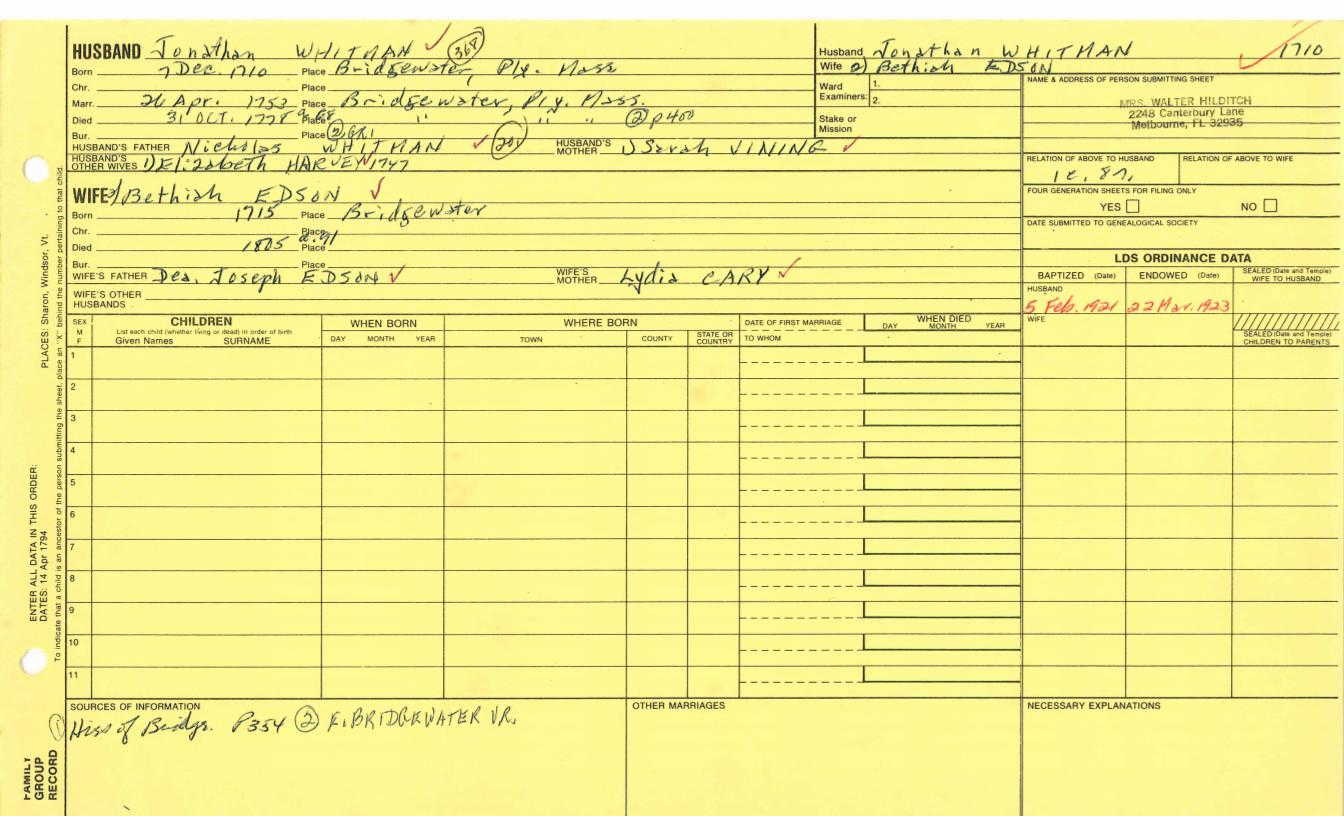 HUSBAND Jonathan WHITMAN 368
Born 7 Dec. 1710 Place Bridgewater, Ply. Mass
Chr. Place
Marr. 26 Apr. 1753 Place Bridgewater, Ply. Mass.
Died 31 OCT. 1778 Place " " " ② p400
Bur. Place ②
HUSBAND'S FATHER Nicholas WHITMAN HUSBAND'S MOTHER Sarah VINING
HUSBAND'S OTHER WIVES 1) Elizabeth HARVEY 1747
WIFE 2) Bethiah EDSON
Born 1715 Place Bridgewater
Chr. Place
Died 1805 a. 91 Place
Bur. Place
WIFE'S FATHER Dea. Joseph EDSON WIFE'S MOTHER Lydia CARY
WIFE'S OTHER HUSBANDS
Husband Jonathan WHITMAN 1710
Wife 2) Bethiah EDSON
Ward Examiners: 1.
2.
Stake or Mission
NAME & ADDRESS OF PERSON SUBMITTING SHEET
MRS. WALTER HILDITCH
2248 Canterbury Lane
Melbourne, FL 32935
RELATION OF ABOVE TO HUSBAND RELATION OF ABOVE TO WIFE
FOUR GENERATION SHEETS FOR FILING ONLY
YES NO
DATE SUBMITTED TO GENEALOGICAL SOCIETY
LDS ORDINANCE DATA
BAPTIZED (Date) ENDOWED (Date) SEALED (Date and Temple) WIFE TO HUSBAND
HUSBAND
5 Feb. 1921 22 Mar. 1923
WIFE
SEALED (Date and Temple) CHILDREN TO PARENTS
SEX M F
CHILDREN
List each child (whether living or dead) in order of birth
Given Names SURNAME
WHEN BORN
DAY MONTH YEAR
WHERE BORN
TOWN COUNTY STATE OR COUNTRY
DATE OF FIRST MARRIAGE
TO WHOM
WHEN DIED
DAY MONTH YEAR
1
2
3
4
5
6
7
8
9
10
11
SOURCES OF INFORMATION
① Hist of Bridgr. P354 ② E. BRIDGEWATER VR.
OTHER MARRIAGES
NECESSARY EXPLANATIONS
FAMILY GROUP RECORD
ENTER ALL DATA IN THIS ORDER:
DATES: 14 Apr 1794
PLACES: Sharon, Windsor, Vt.
To indicate that a child is an ancestor of the person submitting the sheet, place an "X" behind the number pertaining to that child.